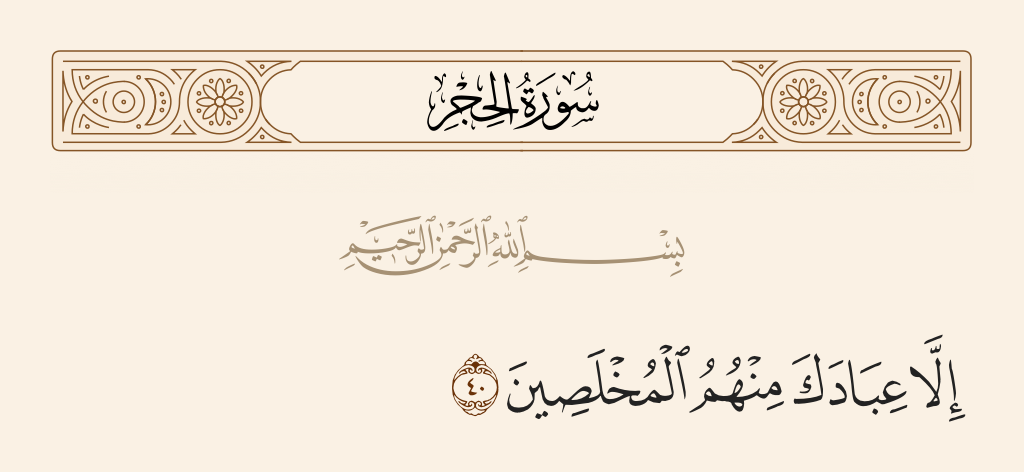 سُورَةُ الحِجْرِ
بِسْمِ ٱللَّهِ ٱلرَّحْمَٰنِ ٱلرَّحِيمِ
إِلَّا عِبَادَكَ مِنْهُمُ ٱلْمُخْلَصِينَ ٤٠